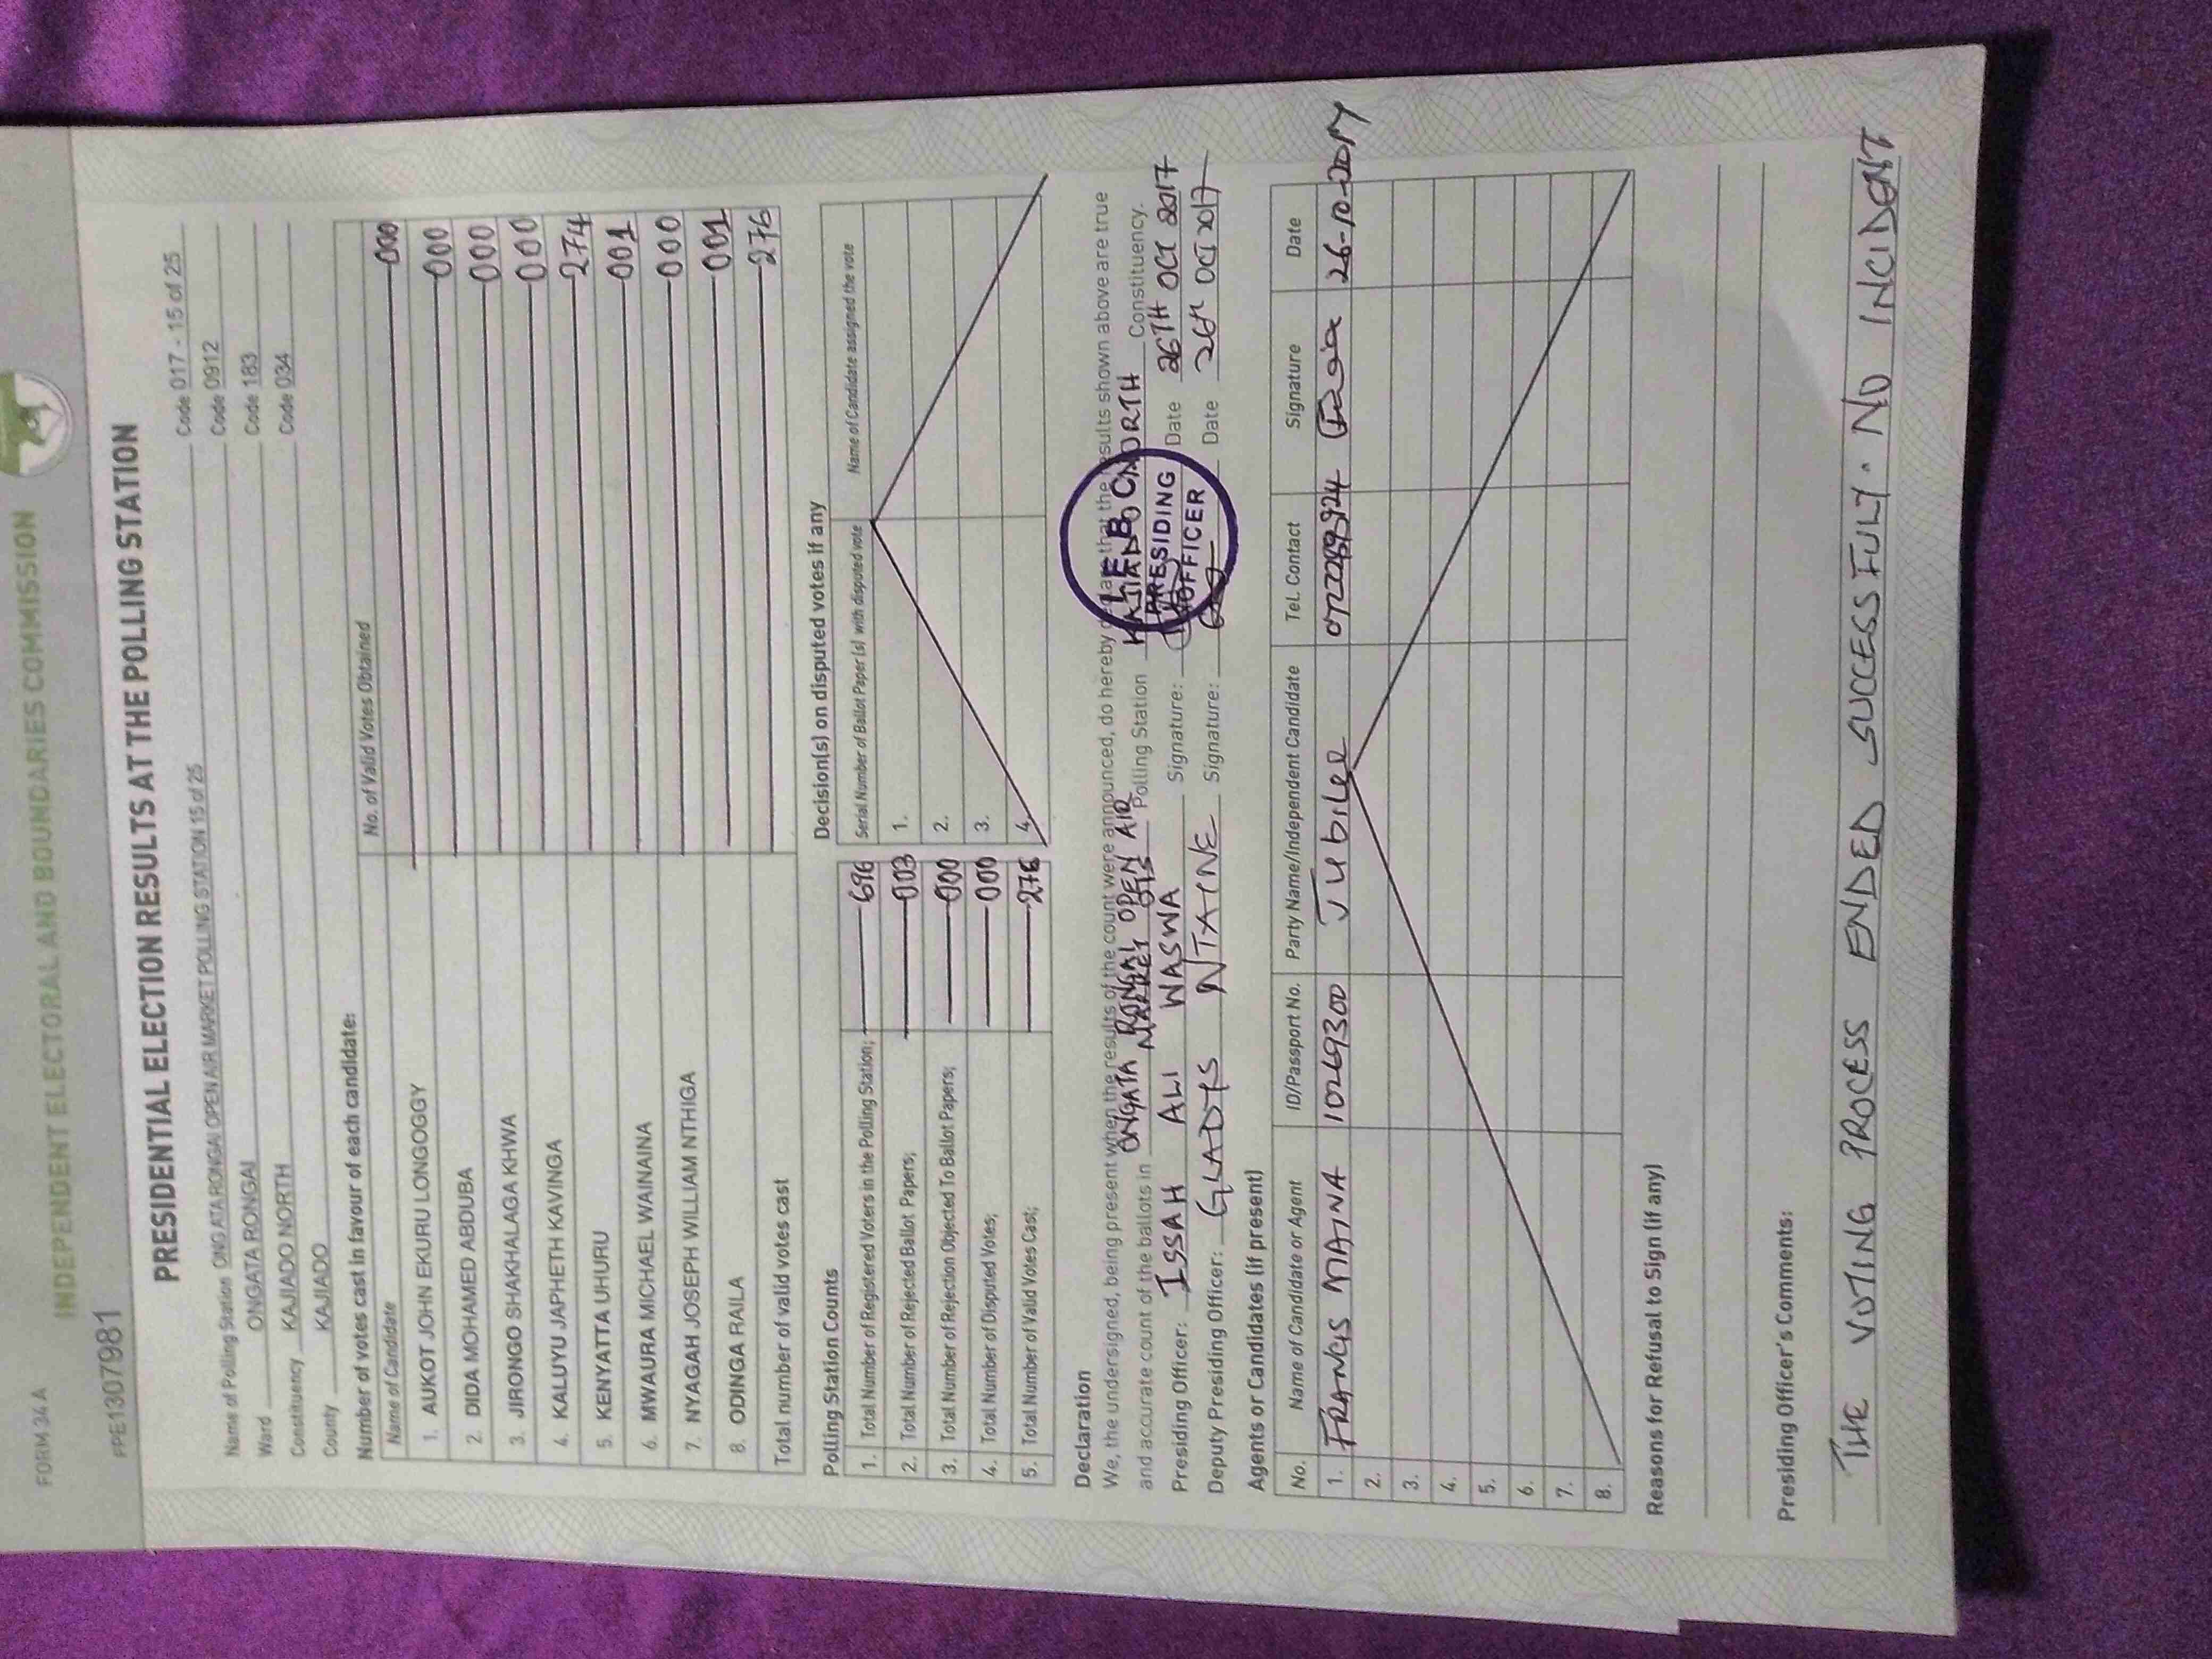 FORM 34A
INDEPENDENT ELECTORAL AND BOUNDARIES COMMISSION
PRE1307981
PRESIDENTIAL ELECTION RESULTS AT THE POLLING STATION
Name of Polling Station ONGATA RONGAI OPEN AIR MARKET POLLING STATION 15 of 25 Code 017 - 15 of 25
Ward ONGATA RONGAI Code 0912
Constituency KAJIADO NORTH Code 183
County KAJIADO Code 034
Number of votes cast in favour of each candidate:
Name of Candidate No. of Valid Votes Obtained
1. AUKOT JOHN EKURU LONGOGGY 000
2. DIDA MOHAMED ABDUBA 000
3. JIRONGO SHAKHALAGA KHWA 000
4. KALUYU JAPHETH KAVINGA 000
5. KENYATTA UHURU 274
6. MWAURA MICHAEL WAINAINA 001
7. NYAGAH JOSEPH WILLIAM NTHIGA 000
8. ODINGA RAILA 001
Total number of valid votes cast 276
Polling Station Counts
1. Total Number of Registered Voters in the Polling Station; 696
2. Total Number of Rejected Ballot Papers; 003
3. Total Number of Rejection Objected To Ballot Papers; 000
4. Total Number of Disputed Votes; 000
5. Total Number of Valid Votes Cast; 276
Decision(s) on disputed votes if any
Serial Number of Ballot Paper (s) with disputed vote Name of Candidate assigned the vote
1.
2.
3.
4.
Declaration
We, the undersigned, being present when the results of the count were announced, do hereby declare that the results shown above are true
and accurate count of the ballots in ONGATA RONGAI OPEN AIR MARKET Polling Station KAJIADO NORTH Constituency.
Presiding Officer: ISSAH ALI WASWA Signature: Date 26TH OCT 2017
Deputy Presiding Officer: GLADYS NTAINE Signature: Date 26TH OCT 2017
I E B C
PRESIDING
OFFICER
Agents or Candidates (if present)
No. Name of Candidate or Agent ID/Passport No. Party Name/Independent Candidate Tel. Contact Signature Date
1. FRANCIS MAINA 10269300 Jubilee 26-10-2017
2.
3.
4.
5.
6.
7.
8.
Reasons for Refusal to Sign (if any)
Presiding Officer's Comments:
THE VOTING PROCESS ENDED SUCCESSFULLY. NO INCIDENT